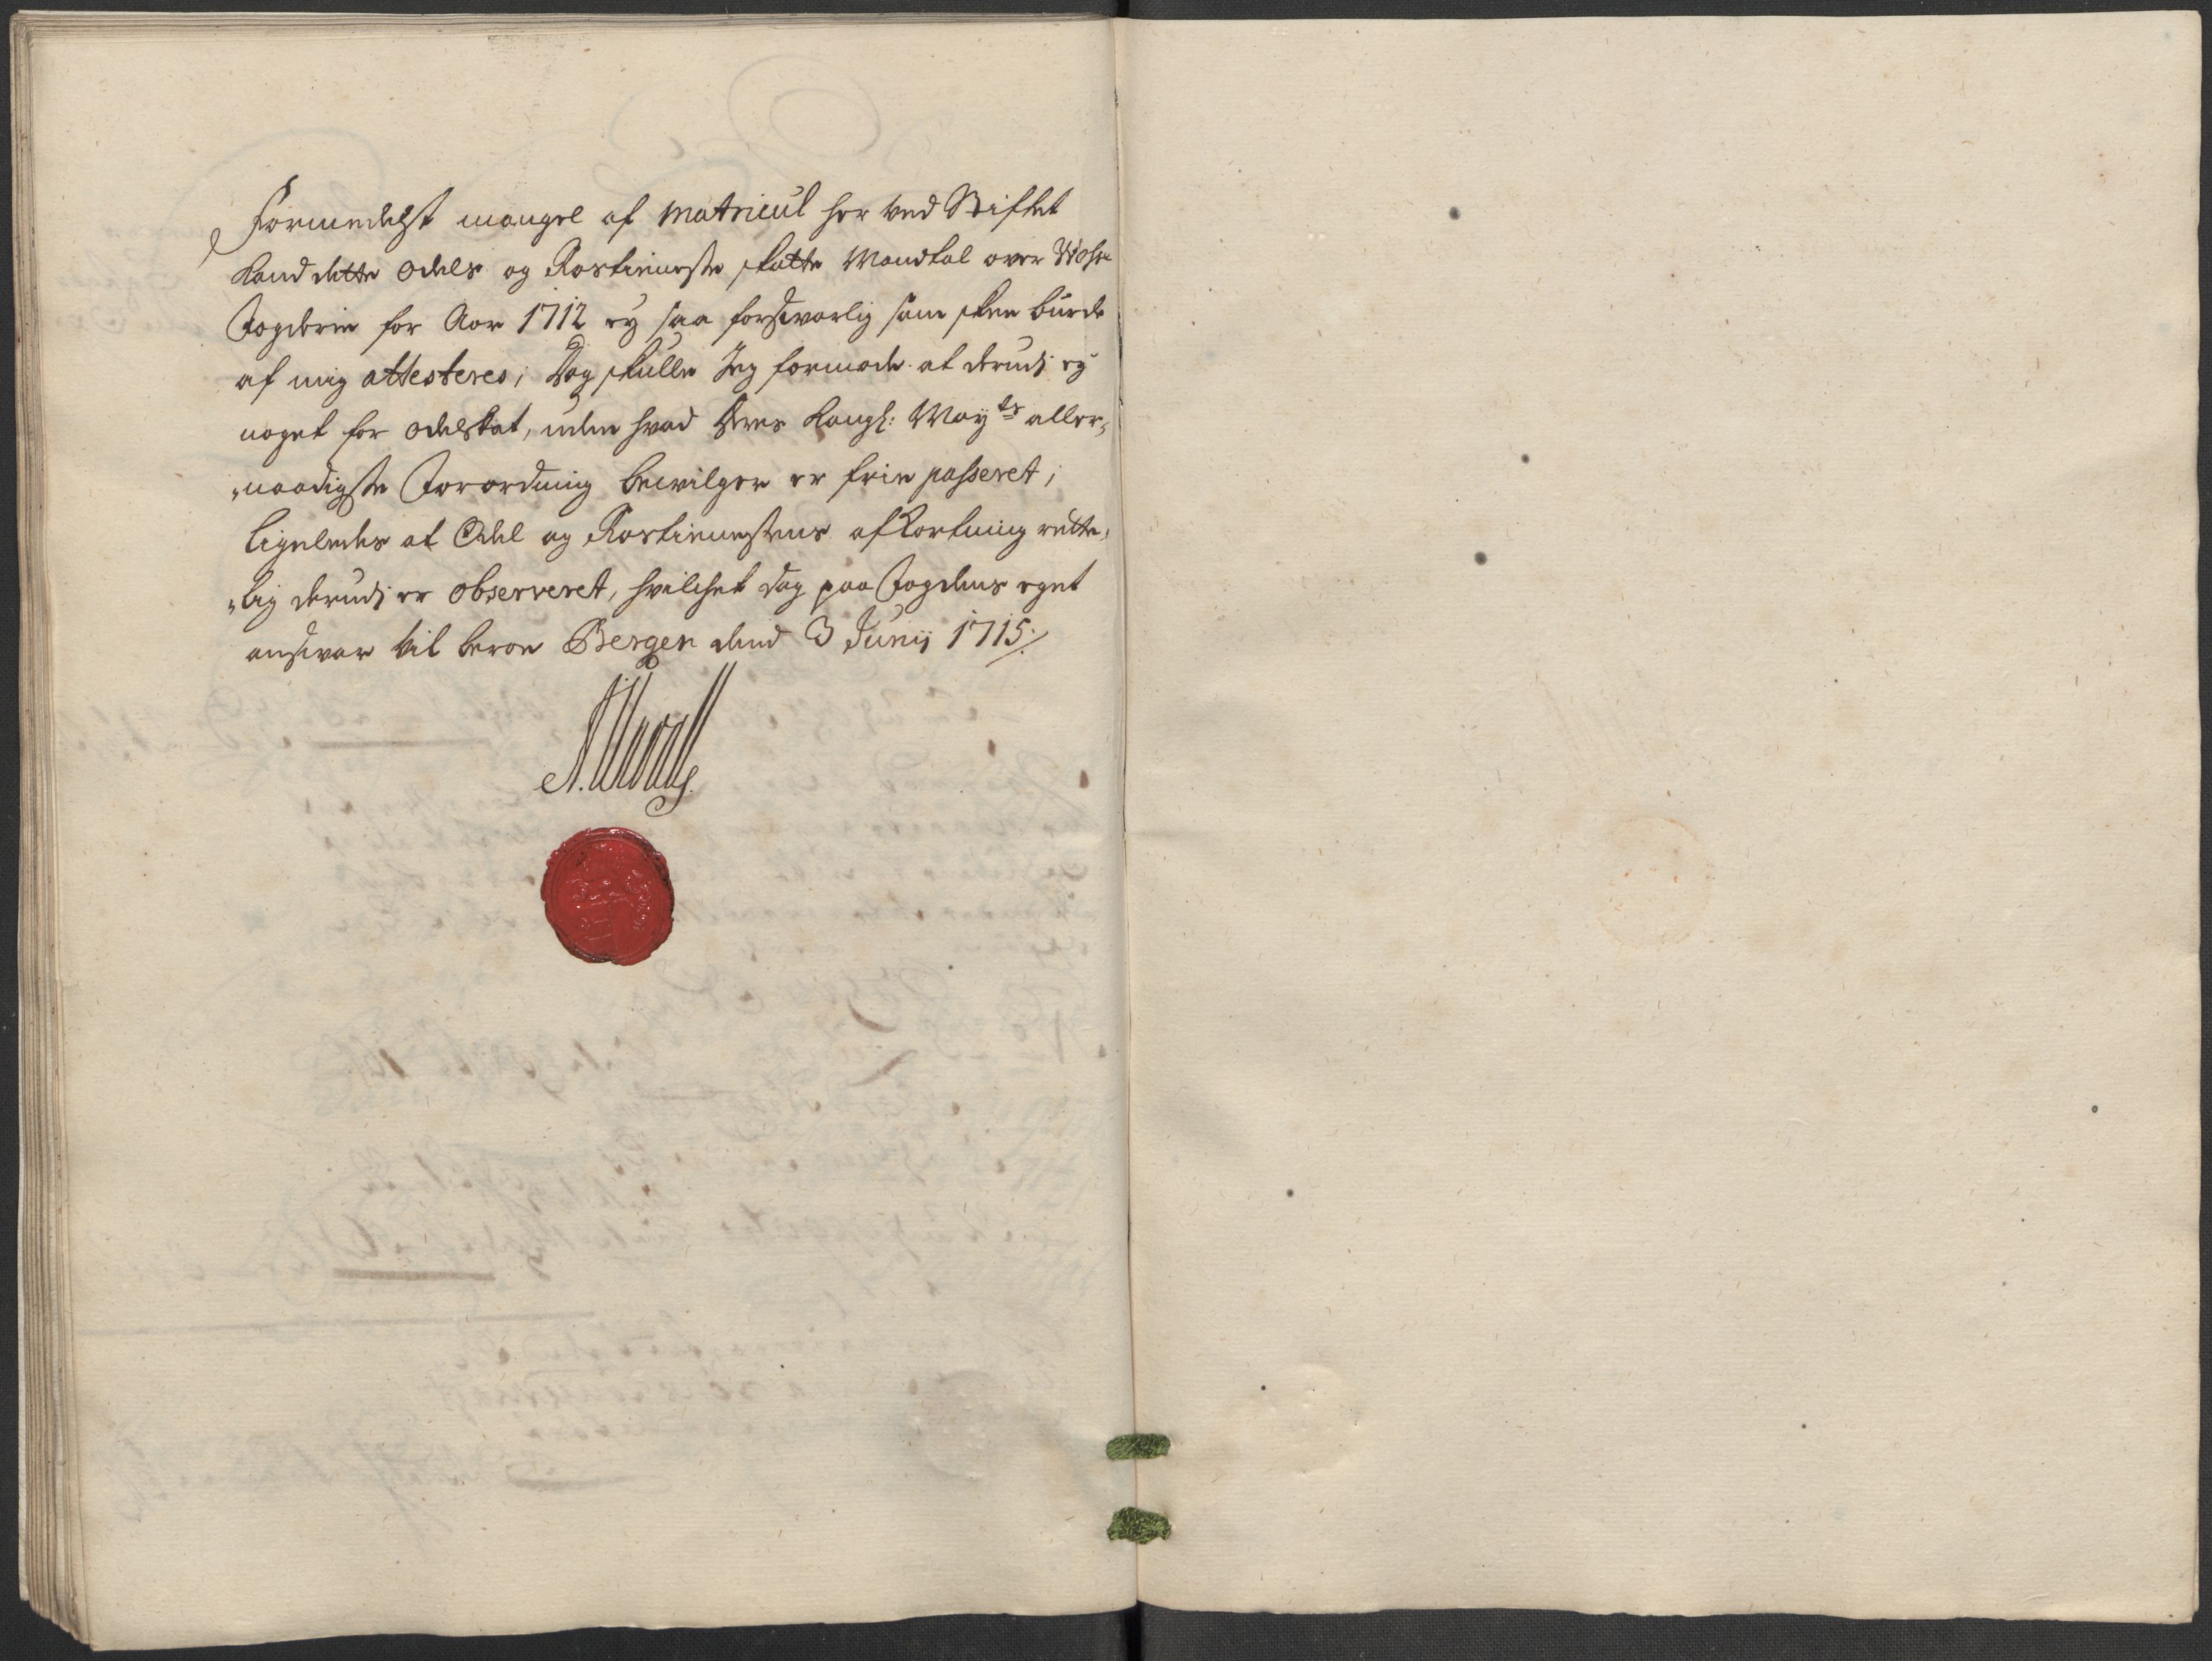 Formedelst mangel af Matricul her ved Stiftet
Kand dette Odels og Rostieniste skatte Mandtal over Woße
Fogderie for Aar 1712 ey saa forsvarlig som skee burde
af mig attesteres; Dog skulle Jeg formode at derudj ey
noget for Odelskat, uden hvad Hans Kongl: Mayts aller,,
,,naadigste Forordning bevilger er frie passeret;
Ligeledes at Odel og Rostienistens afkortning rette,,
,,lig derudj er observeret, hvilchet dog paa Fogdens eget
ansvar vil beroe Bergen dend 3 Junij 1715:/